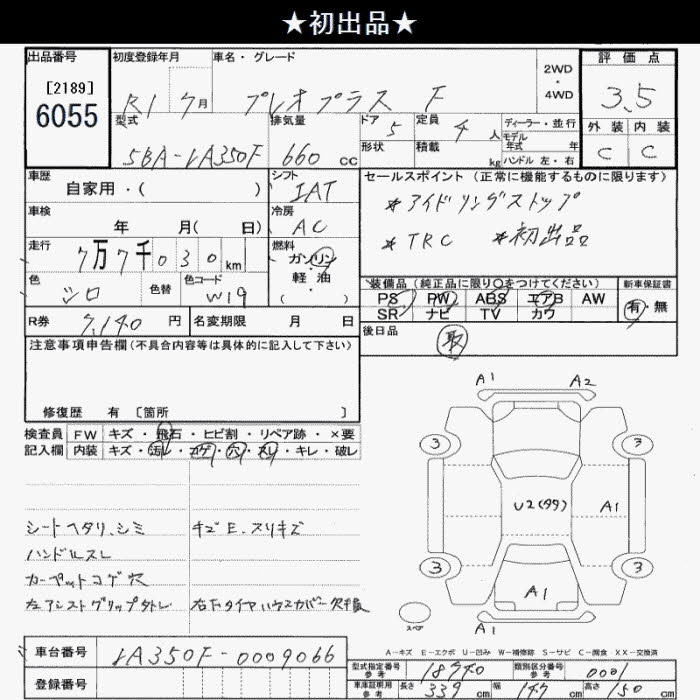 ★初出品★
出品番号
[2189]
6055
初度登録年月
R1 7月
車名・グレード
プレオプラス F
2WD
・
4WD
評価点
3.5
外装 内装
C C
型式
5BA-LA350F
排気量
660 cc
ドア 5
形状
定員 4 人
積載 kg
ディーラー・並行
モデル
年式 年
ハンドル 左・右
車歴
自家用・( )
シフト
IAT
車検
年 月( 日)
冷房
AC
走行
7万7千030km
燃料
ガソリン
・
軽油
・
( )
色
シロ
色替
色コード
W19
セールスポイント(正常に機能するものに限ります)
*アイドリングストップ
*TRC *初出品
装備品(純正品に限り○をつけてください)
PS PW ABS エアB AW
SR ナビ TV カワ
新車保証書
有・無
R券 7,140 円
名変期限 月 日
後日品
取
注意事項申告欄(不具合内容等は具体的に記入して下さい)
修復歴 有 [箇所 ]
検査員
記入欄
FW キズ・飛石・ヒビ割・リペア跡・×要
内装 キズ・汚レ・コゲ・穴・スレ・キレ・破レ
シートヘタリ、シミ
ハンドルスレ
カーペットコゲ穴
左アシストグリップ外レ
キズE、スリキズ
右下タイヤハウスカバー欠損
A1 A2
3 3
U2(99) A1
3 3
A1
A1
スペア
A-キズ E-エクボ U-凹み W-補修跡 S-サビ C-腐食 XX-交換済
車台番号
LA350F-0009066
登録番号
型式指定番号
参考
18940
類別区分番号
参考
0001
車庫証明用
参考
長さ 339 cm 幅 147 cm 高さ 150 cm